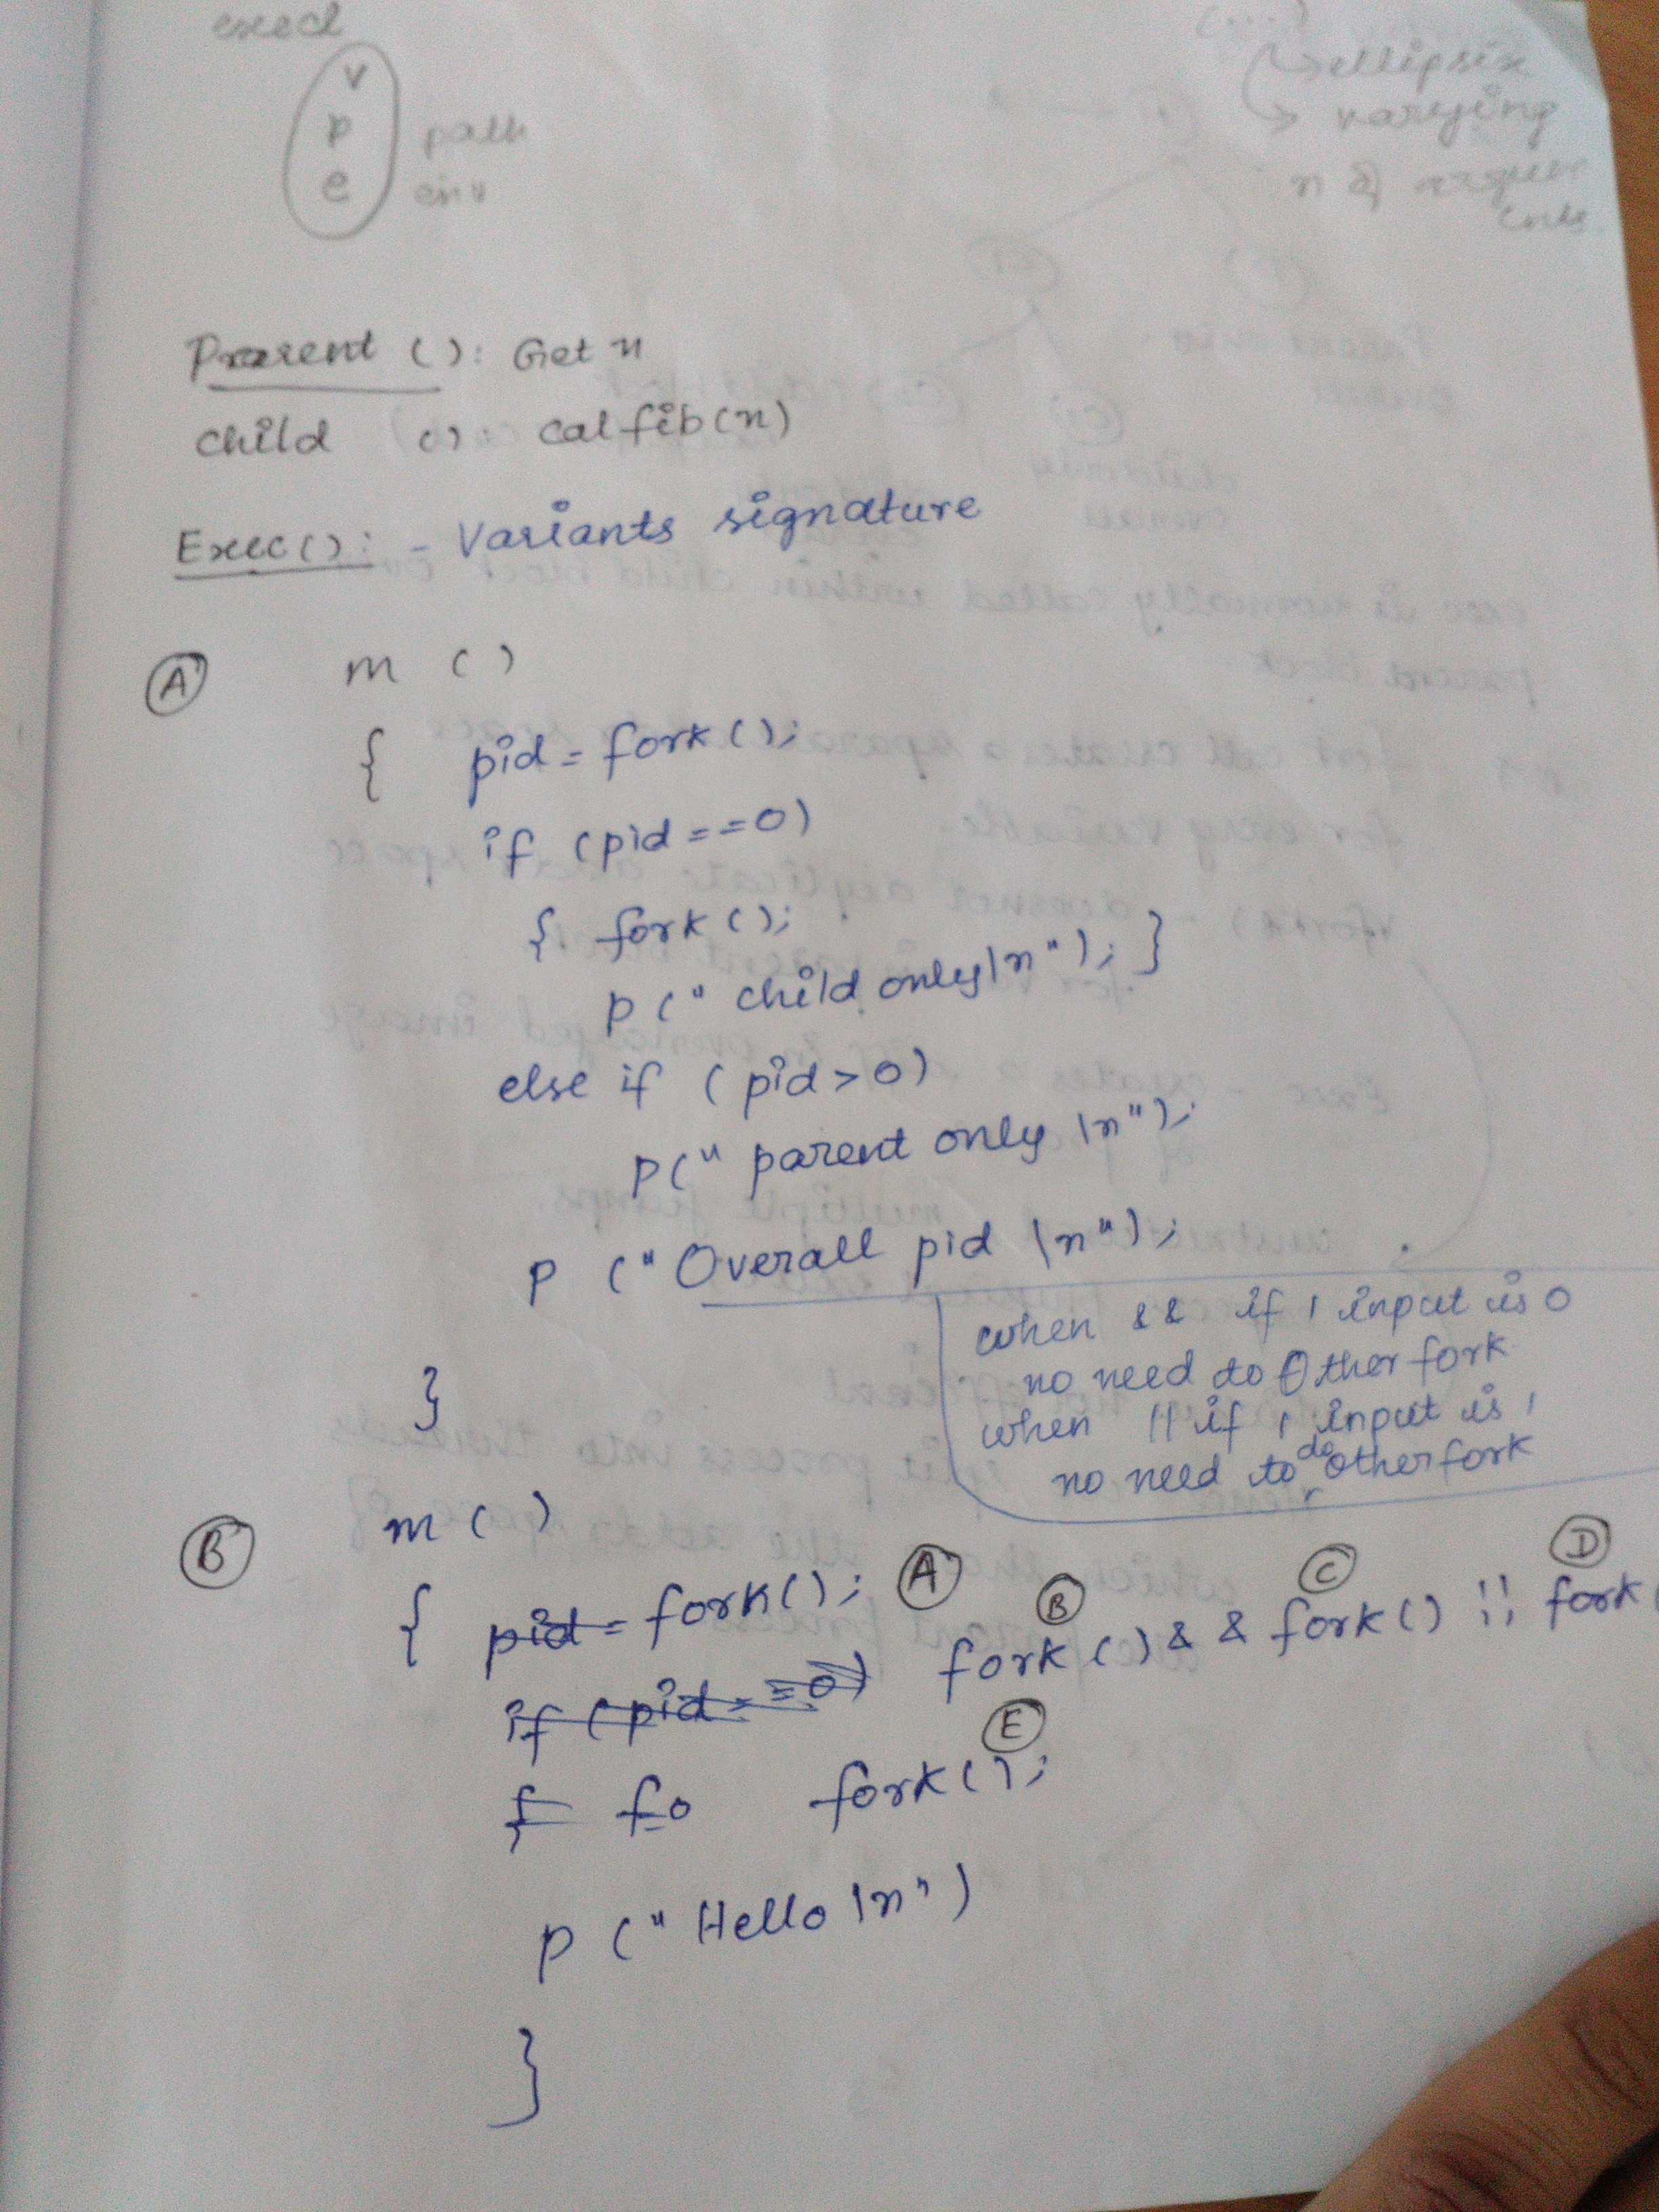 execl
v
p path
e env
(...)
ellipsix
varying
n of argum
ents.
Prarent (): Get n
child (): cal fib(n)
Exec(): - Variants signature
A m ()
{ pid = fork();
if (pid==0)
{ fork();
p (" child only\n"); }
else if (pid>0)
p(" parent only \n");
p ("Overall pid \n");
when && if 1 input is 0
no need to Other fork
when || if 1 input is 1
no need to do other fork
}
B m ()
{ pid = fork(); A
if (pid==0) fork() && fork() || fork(
B C D
{ fo fork(); E
p ("Hello \n")
}